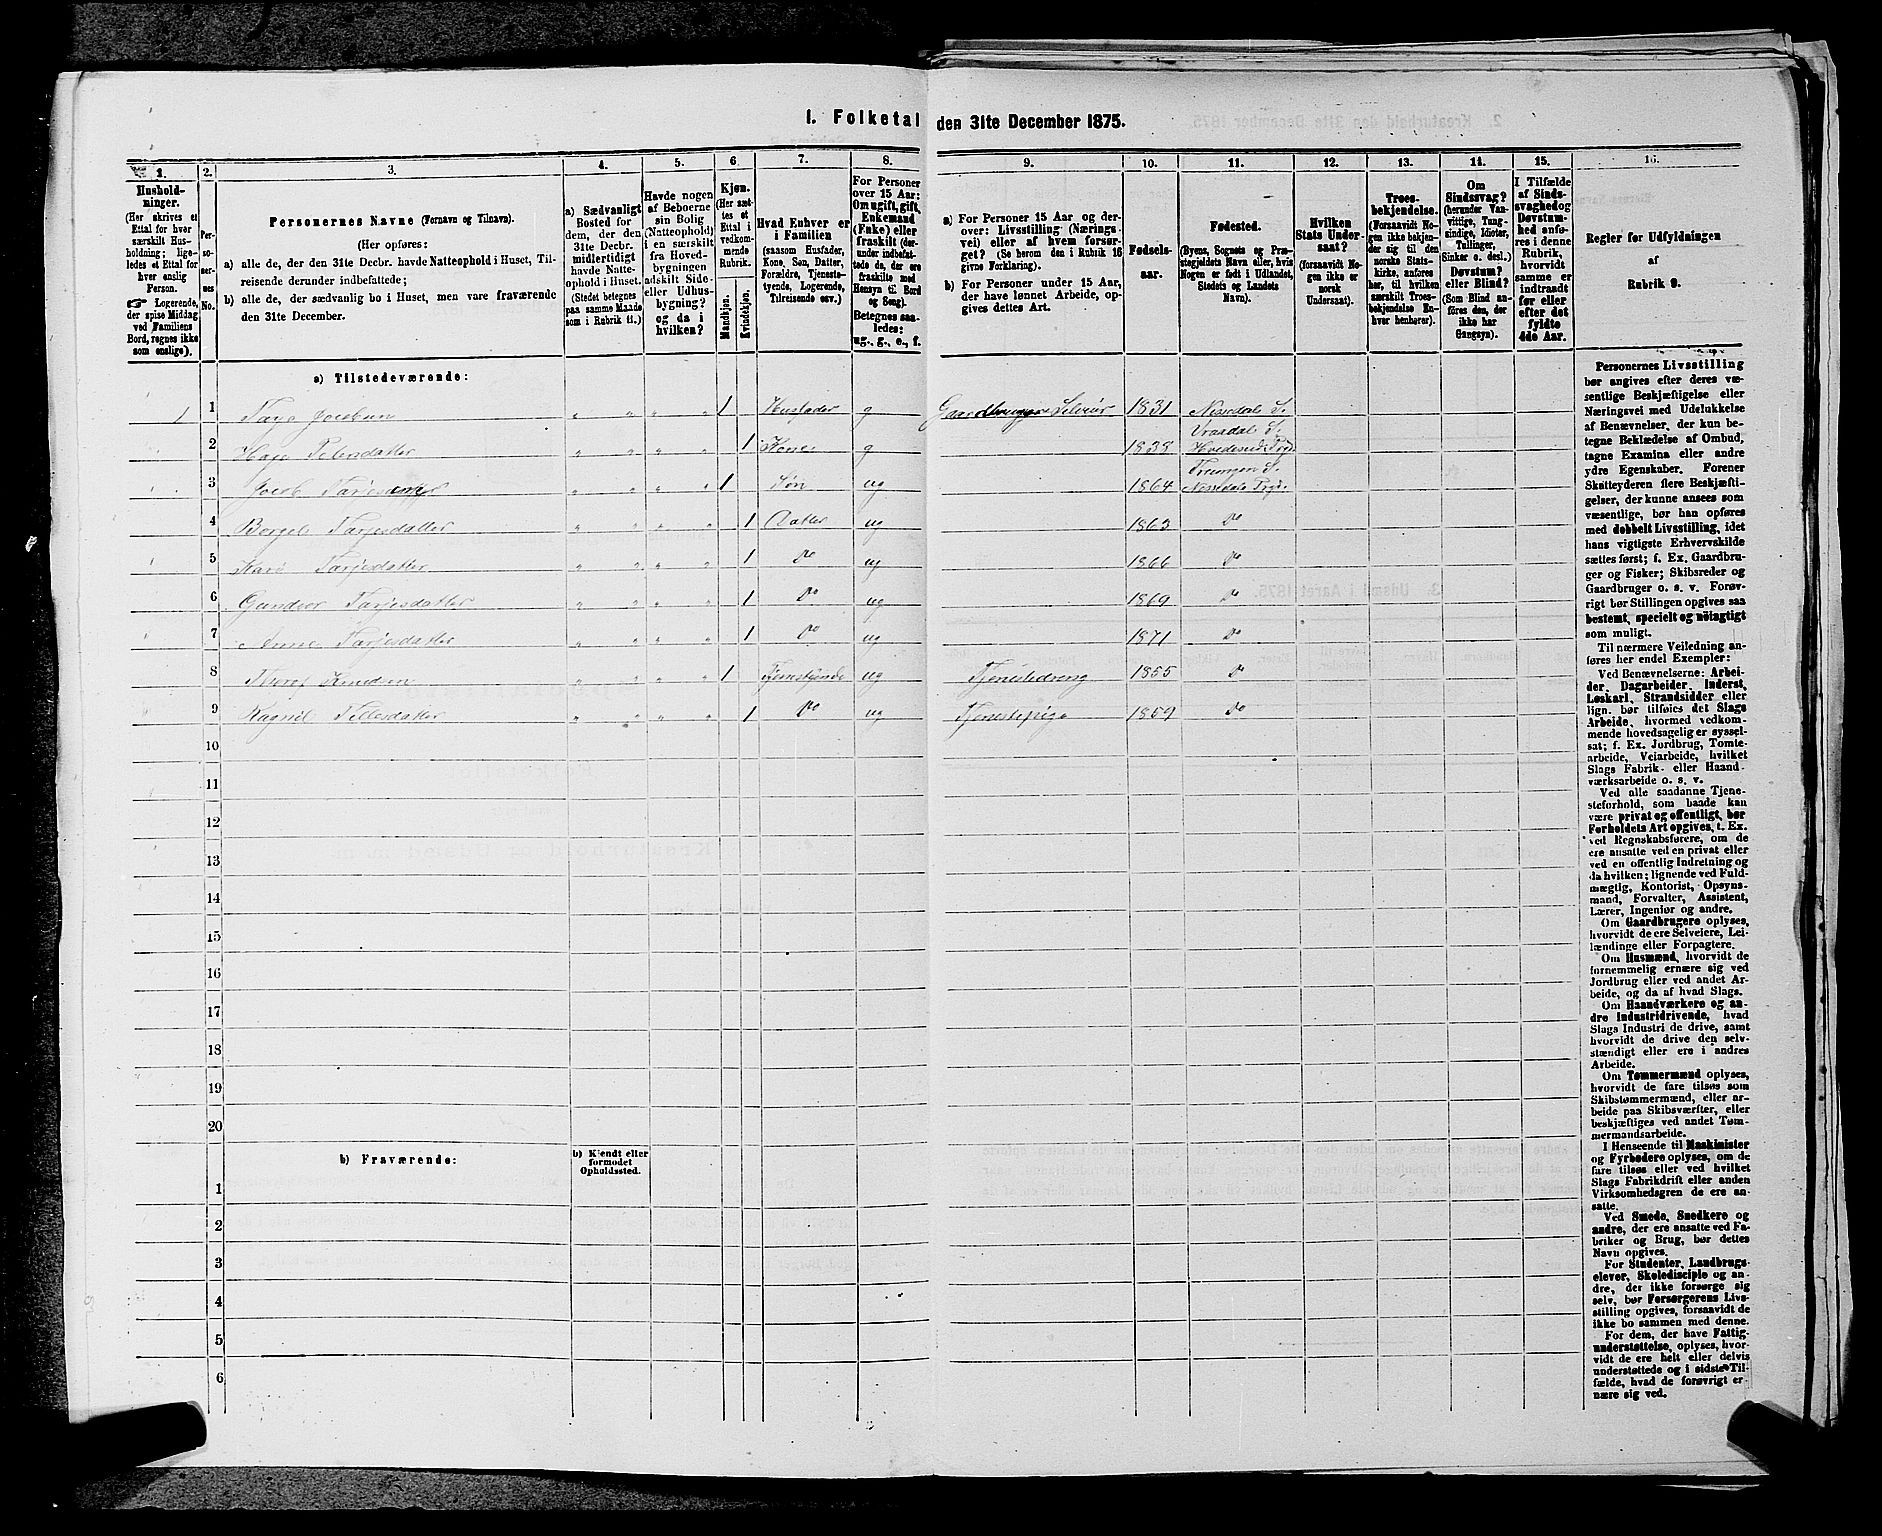 I. Folketal den 31te December 1875.
1. 2. 3. 4. 5. 6 7. 8. 9. 10. 11. 12. 13. 14. 15. 16.
Hushold-
ninger.
(Her skrives et
Ettal for hver
særskilt Hus-
holdning; lige-
ledes et Ettal for
hver enslig
Person.
☞ Logerende,
der spise Middag
ved Familiens
Bord, regnes ikke
som enslige).
Per-
so-
ner-
nes
No.
Personernes Navne (Fornavn og Tilnavn).
(Her opføres:
a) alle de, der den 31te Decbr. havde Natteophold i Huset, Til-
reisende derunder indbefattede;
b) alle de, der sædvanlig bo i Huset, men vare fraværende
den 31te December.
a) Sædvanligt
Bosted for
dem, der den
31te Decbr.
midlertidigt
havde Natte-
ophold i Huset.
(Stedet betegnes
paa samme Maade
som i Rubrik 11.)
Havde nogen
af Beboerne
sin Bolig
(Natteophold)
i en særskilt
fra Hoved-
bygningen
adskilt Side-
eller Udhus-
bygning?
og da i
hvilken?
Kjøn.
(Her sæt-
tes et
Ettal i
vedkom-
mende
Rubrik.
Mandkjøn.
Kvindekjøn.
Hvad Enhver er
i Familien
(saasom Husfader,
Kone, Søn, Datter,
Forældre, Tjeneste-
tyende, Logerende,
Tilreisende osv.)
For Personer
over 15 Aar:
Om ugift, gift,
Enkemand
(Enke) eller
fraskilt (der-
under indbefat-
tede de, der ere
fraskilte med
Hensyn til Bord
og Seng).
Betegnes saa-
ledes:
ug., g., e., f.
a) For Personer 15 Aar og der-
over: Livsstilling (Nærings-
vei) eller af hvem forsør-
get? (Se herom den i Rubrik 16
givne Forklaring).
b) For Personer under 15 Aar,
der have lønnet Arbeide, op-
gives dettes Art.
Fødsels-
aar.
Fødested.
(Byens, Sognets og Præ-
stegjeldets Navn eller, hvis
Nogen er født i Udlandet,
Stedets og Landets
Navn).
Hvilken
Stats Under-
saat?
(forsaavidt No-
gen ikke er
norsk
Undersaat).
Troes-
bekjendelse.
(Forsaavidt No-
gen ikke bekjen-
der sig til den
norske Stats-
kirke, anføres
her, til hvilken
særskilt Troes-
bekjendelse En-
hver henhører).
Om
Sindssvag?
(herunder Van-
vittige, Tung-
sindige, Idioter,
Tullinger,
Sinker o. desl.)
Døvstum?
eller Blind?
(Som Blind an-
føres den, der
ikke har
Gangsyn).
I Tilfælde
af Sinds-
svaghed og
Døvstum-
hed anfø-
res i denne
Rubrik,
hvorvidt
samme er
indtraadt
før eller
efter det
fyldte
4de Aar.
Regler for Udfyldningen
af
Rubrik 9.
a) Tilstedeværende:
1 1 Tarje Jocobsen „ „ „ „ 1 Husfader g Gaardbruger Selveier 1831 Nissedals S.
2 Kone g 1838 Vraadal S.
3 1 Søn ug 1864 Nissedals
4 Borgil Tarjesdatter „ „ „ „ 1 Datter ug 1863 Do
5 Kari Tarjesdatter „ „ „ „ 1 Do ug 1866 Do
6 Gunvor Tarjesdatter „ „ „ „ 1 Do ug 1869 Do
7 Anne Tarjesdatter „ „ „ „ 1 Do ug 1871 Do
8 Knudsen „ „ „ „ 1 Tjenestyende ug Tjenestedreng 1855 Do
9 Ragnil Tellefsdatter „ „ „ „ 1 Do ug Tjenestepige 1859 Do
10
11
12
13
14
15
16
17
18
19
20
b) Fraværende:
b) Kjendt eller
formodet
Opholdssted.
1
2
3
4
5
6
Personernes Livsstilling
bør angives efter deres væ-
sentlige Beskjæftigelse eller
Næringsvei med Udelukkelse
af Benævnelser, der kun be-
tegne Beklædelse af Ombud,
tagne Examina eller andre
ydre Egenskaber. Forener
Skatteyderen flere Beskjæfti-
gelser, der kunne ansees som
væsentlige, bør han opføres
med dobbelt Livsstilling, idet
hans vigtigste Erhvervskilde
sættes først; f. Ex. Gaardbru-
ger og Fisker; Skibsreder og
Gaardbruger o. s. v. Forøv-
rigt bør Stillingen opgives saa
bestemt, specielt og nøiagtigt
som muligt.
Til nærmere Veiledning an-
føres her endel Exempler:
Ved Benævnelserne: Arbei-
der, Dagarbeider, Inderst,
Løskarl, Strandsidder eller
lign. bør tilføies det Slags
Arbeide, hvormed vedkom-
mende hovedsagelig er syssel-
sat; f. Ex. Jordbrug, Tomte-
arbeide, Veiarbeide, hvilket
Slags Fabrik- eller Haand-
værksarbeide o. s. v.
Ved alle saadanne Tjene-
steforhold, som baade kan
være privat og offentligt, bør
Forholdets Art opgives, f. Ex.
ved Regnskabsførere, om de
ere ansatte ved en privat eller
ved en offentlig Indretning og
da hvilken; lignende ved Fuld-
mægtig, Kontorist, Opsyns-
mand, Forvalter, Assistent,
Lærer, Ingeniør og andre.
Om Gaardbrugere oplyses,
hvorvidt de ere Selveiere, Lei-
lændinge eller Forpagtere.
Om Husmænd, hvorvidt de
fornemmelig ernære sig ved
Jordbrug eller ved andet Ar-
beide, og da af hvad Slags.
Om Haandværkere og an-
dre Industridrivende, hvad
Slags Industri de drive, samt
hvorvidt de drive den selv-
stændigt eller ere i andres
Arbeide.
Om Tømmermænd oplyses,
hvorvidt de fare tilsøs som
Skibstømmermænd, eller ar-
beide paa Skibsværfter, eller
beskjæftiges ved andet Tøm-
mermandsarbeide.
I Henseende til Maskinister
og Fyrbødere oplyses, om de
fare tilsøs eller ved hvilket
Slags Fabrikdrift eller anden
Virksomhedsgren de ere an-
satte.
Ved Smede, Snedkere og
andre, der ere ansatte ved Fa-
briker og Brug, bør dettes
Navn opgives.
For Studenter, Landbrugs-
elever, Skoledisciple og an-
dre, der ikke forsørge sig
selv, bør Forsørgerens Livs-
stilling opgives, forsaavidt de
ikke bo sammen med denne.
For dem, der have Fattig-
understøttelse, oplyses, hvor-
vidt de ere helt eller delvis
understøttede og i sidste Til-
fælde, hvad de forøvrigt er-
nære sig ved.